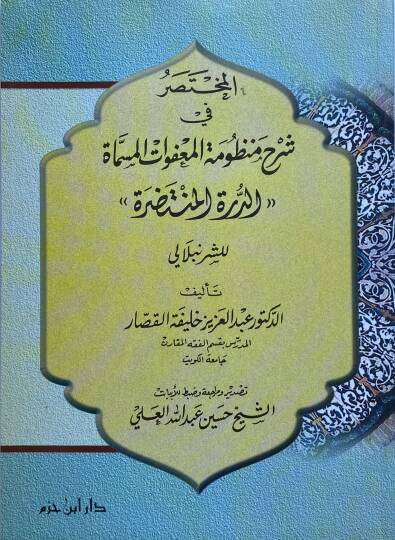 المختصر
في
شرح منظومة المعفوات المسماة
«الدرة المنتضرة»
للشرنبلالي
تأليف
الدكتور عبد العزيز خليفة القصار
المدرس بقسم الفقه المقارن
جامعة الكويت
تصدير ومراجعة وضبط للأبيات
الشيخ حسين عبد الله العلي
دار ابن حزم